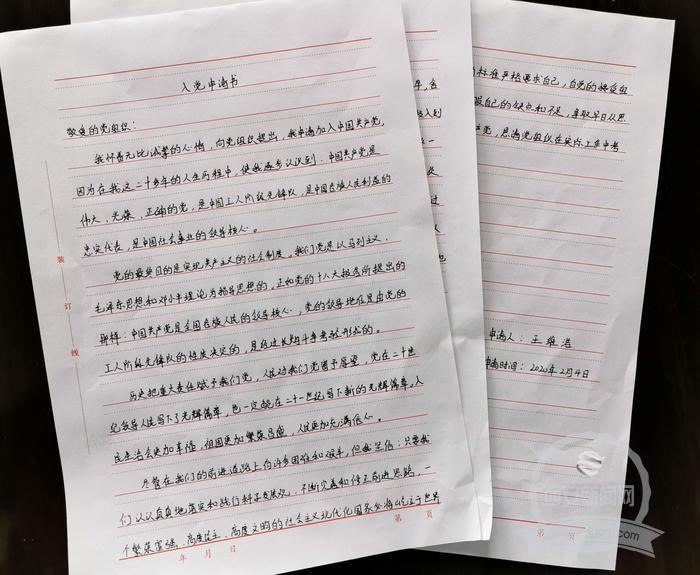 入党申请书
敬重的党组织：
我怀着无比诚挚的心情，向党组织提出，我申请加入中国共产党，
因为在我这二十多年的人生历程中，使我逐步认识到：中国共产党是
伟大、光荣、正确的党，是中国工人阶级先锋队，是中国各族人民利益的
忠实代表，是中国社会事业的领导核心。
党的最终目的是实现共产主义的社会制度。我们党是以马列主义、
毛泽东思想和邓小平理论为指导思想的，正如党的十八大报告所提出的
那样：中国共产党是全国各族人民的领导核心，党的领导地位是由党的
工人阶级先锋队的性质决定的，是经过长期斗争考验形成的。
历史把重大责任赋予我们党，人民对我们党寄予厚望，党在二十世
纪领导人民写下了光辉篇章，也一定能在二十一世纪写下新的光辉篇章。人
民生活会更加幸福，祖国更加繁荣昌盛，人民更加充满信心。
尽管在我们的前进道路上有许多困难和艰辛，但我坚信：只要我
们认认真真地落实和践行科学发展观，不断完善和修正前进思路，一
个繁荣富强、高度民主、高度文明的社会主义现代化国家必将屹立于世界
年 月 日
第 页
装
订
线
标准严格要求自己，自觉的接受组
服自己的缺点和不足，争取早日从思
党，恳请党组织在实际工作中考
申请人：王雅浩
申请时间：2020年2月4日
新闻网
第 页